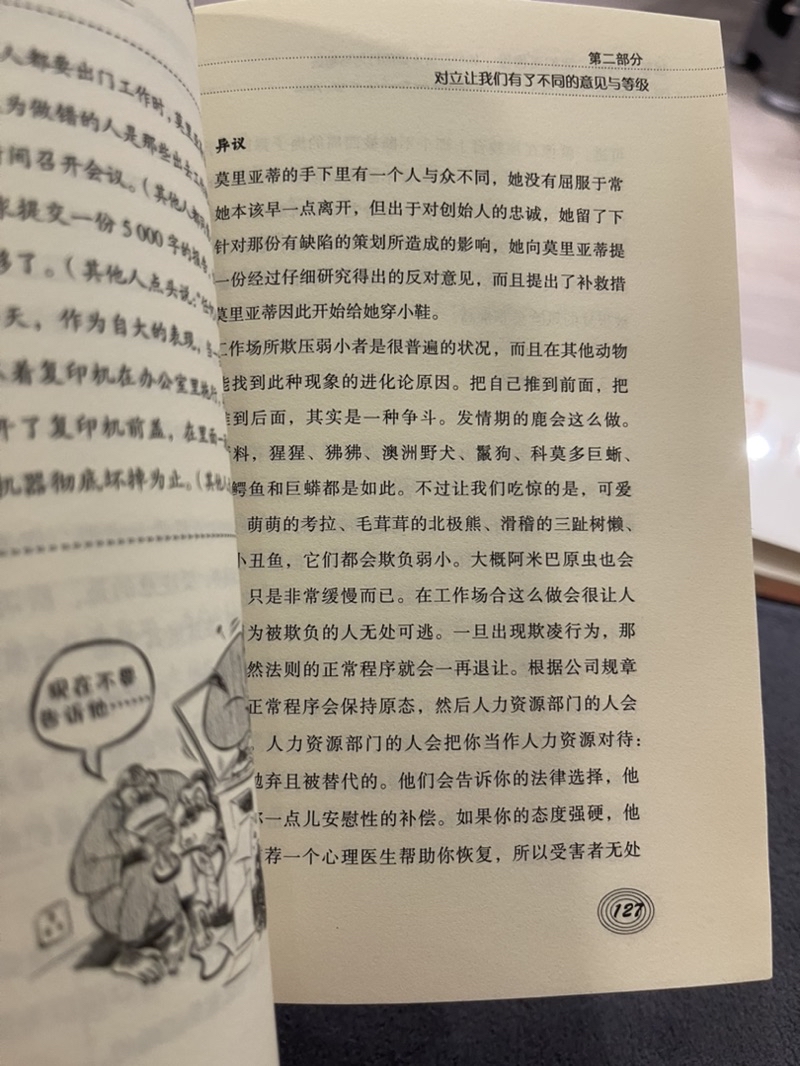 人都要出门工作时，莫里
为做错的人是那些出去工
时间召开会议。（其他人都
求提交一份5000字的报告
够了。（其他人点头说：“
天，作为自大的表现，
着复印机在办公室里
开了复印机前盖，在里面一
机器彻底坏掉为止。（其他
现在不要
告诉他……
第二部分
对立让我们有了不同的意见与等级
异议
莫里亚蒂的手下里有一个人与众不同，她没有屈服于常
她本该早一点离开，但出于对创始人的忠诚，她留了下
针对那份有缺陷的策划所造成的影响，她向莫里亚蒂提
一份经过仔细研究得出的反对意见，而且提出了补救措
莫里亚蒂因此开始给她穿小鞋。
工作场所欺压弱小者是很普遍的状况，而且在其他动物
能找到此种现象的进化论原因。把自己推到前面，把
推到后面，其实是一种争斗。发情期的鹿会这么做。
料，猩猩、狒狒、澳洲野犬、鬣狗、科莫多巨蜥、
鳄鱼和巨蟒都是如此。不过让我们吃惊的是，可爱
萌萌的考拉、毛茸茸的北极熊、滑稽的三趾树懒、
小丑鱼，它们都会欺负弱小。大概阿米巴原虫也会
只是非常缓慢而已。在工作场合这么做会很让人
为被欺负的人无处可逃。一旦出现欺凌行为，那
然法则的正常程序就会一再退让。根据公司规章
正常程序会保持原态，然后人力资源部门的人会
，人力资源部门的人会把你当作人力资源对待：
抛弃且被替代的。他们会告诉你的法律选择，他
你一点儿安慰性的补偿。如果你的态度强硬，他
荐一个心理医生帮助你恢复，所以受害者无处
127